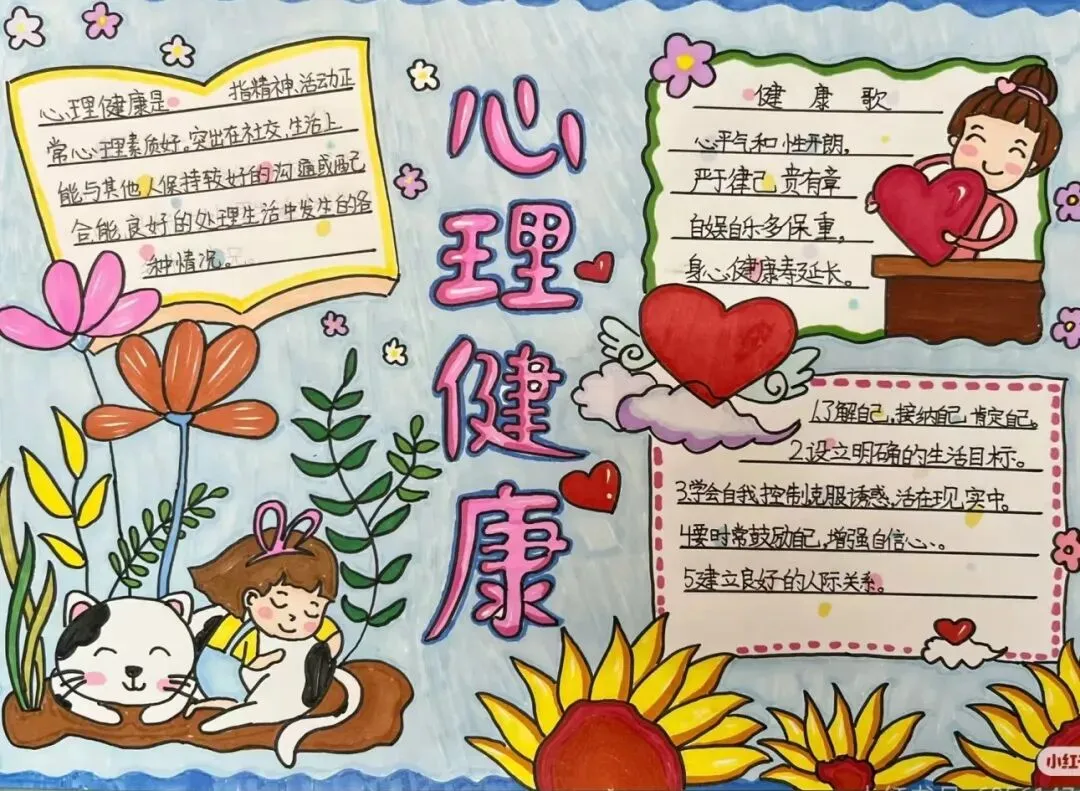 心理健康是 指精神、活动正
常心理素质好,突出在社交,生活上
能与其他人保持较好的沟通或配
合能良好的处理生活中发生的各
种情况。
心理健康
健康歌
心平气和性开朗,
严于律己贵有章
自娱自乐多保重,
身心健康寿延长。
1.了解自己,接纳自己,肯定自己。
2.设立明确的生活目标。
3.学会自我控制克服诱惑,活在现实中。
4要时常鼓励自己,增强自信心、。
5建立良好的人际关系。